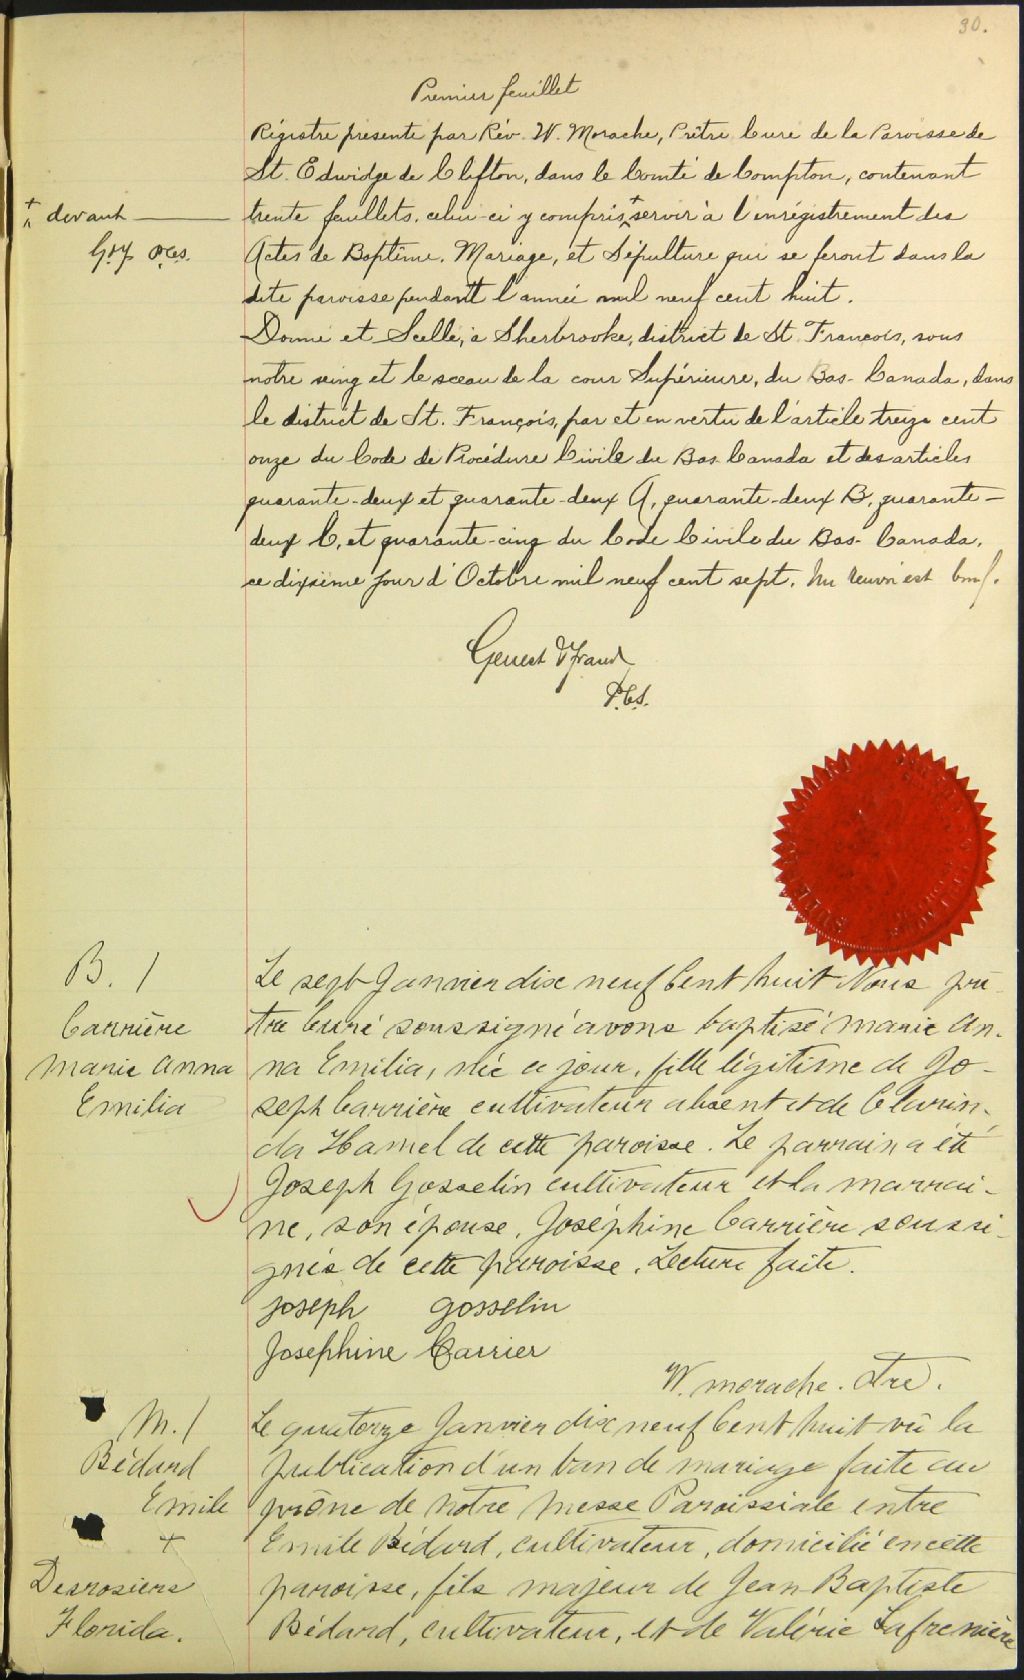 30.
Premier feuillet
Régistre présenté par Rév. W. Morache, Prêtre Curé de la Paroisse de
St. Edwidge de Clifton, dans le Comté de Compton, contenant
+ devant
trente feuillets, celui-ci y compris + servir à l'enrégistrement des
G&F P.C.S.
Actes de Baptême, Mariage, et Sépulture qui se feront dans la
dite paroisse pendant l'année mil neuf cent huit.
Donné et Scellé, à Sherbrooke, district de St. François, sous
notre seing et le sceau de la cour Supérieure, du Bas-Canada, dans
le district de St. François, par et en vertu de l'article treize cent
onze du Code de Procédure Civile du Bas Canada et des articles
quarante-deux et quarante-deux A, quarante-deux B, quarante-
deux C, et quarante-cinq du Code Civile du Bas-Canada,
ce dixième jour d'Octobre mil neuf cent sept. Un renvoi est bon.
Genest &
P.C.S.
B. 1
Carrière
Marie Anna
Emilia
Le sept Janvier dix neuf Cent huit Nous prê-
tre Curé soussigné avons baptisé marie An-
na Emilia, née ce jour, fille légitime de Jo-
seph Carrière cultivateur absent et de Clarin-
da Hamel de cette paroisse. Le parrain a été
Joseph Gosselin cultivateur et la marrai-
ne, son épouse, Joséphine Carrière soussi-
gnés de cette paroisse. Lecture faite.
joseph gosselin
Josephine Carrier
W. morache. Ptre.
M. 1
Bédard
Emile
+
Desrosiers
Florida.
Le quatorze Janvier dix neuf Cent huit vû la
publication d'un ban de mariage faite au
prône de notre messe Paroissiale entre
Emile Bédard, cultivateur, domicilié en cette
paroisse, fils majeur de Jean-Baptiste
Bédard, cultivateur, et de Valérie Lafrenière